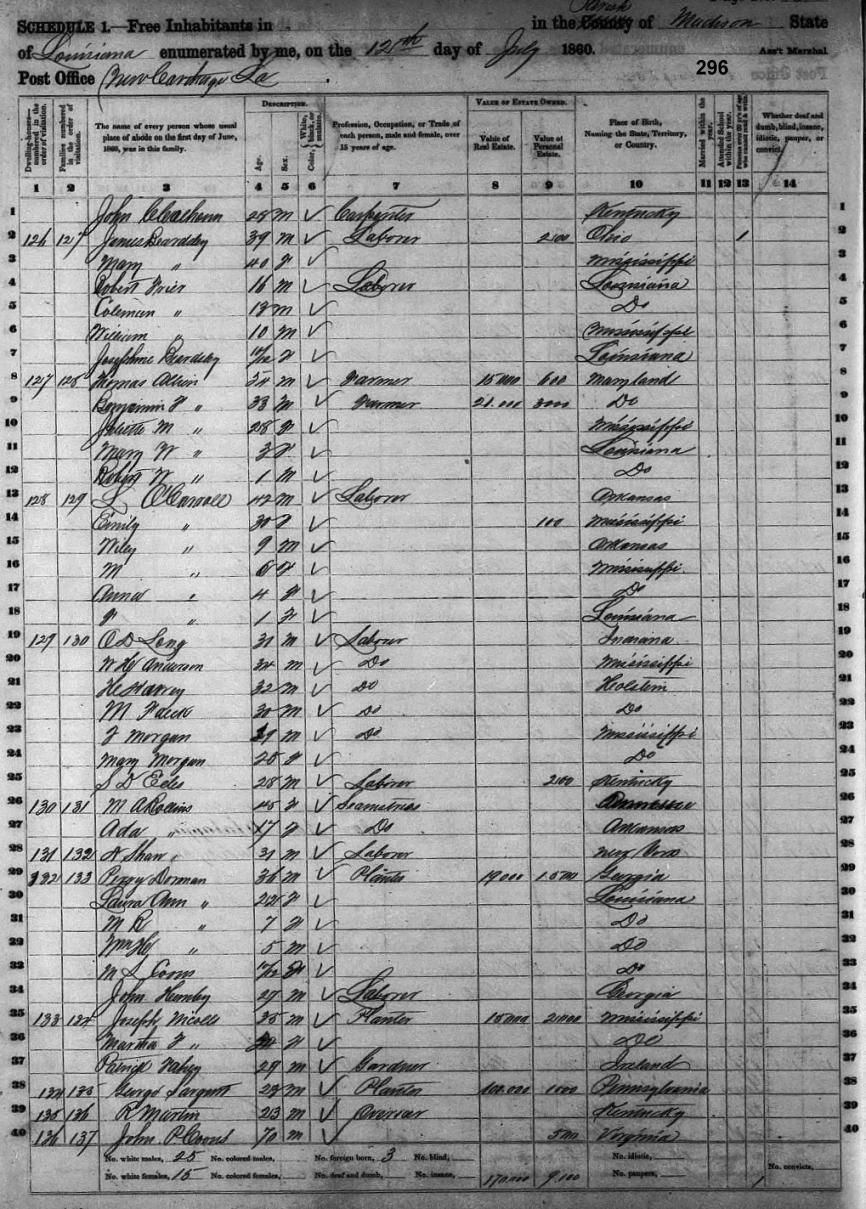 Parish
SCHEDULE 1.—Free Inhabitants in in the County of Madison State
of Louisiana enumerated by me, on the 12th day of July 1860. Ass't Marshal
Post Office New Carthage La 296
DESCRIPTION. VALUE OF ESTATE OWNED.
Dwelling-houses—numbered in the order of visitation. Families numbered in the order of visitation. The name of every person whose usual place of abode on the first day of June, 1860, was in this family. Age. Sex. Color, White, black, or mulatto. Profession, Occupation, or Trade of each person, male and female, over 15 years of age. Value of Real Estate. Value of Personal Estate. Place of Birth, Naming the State, Territory, or Country. Married within the year. Attended School within the year. Persons over 20 y'rs of age who cannot read & write. Whether deaf and dumb, blind, insane, idiotic, pauper, or convict.
1 2 3 4 5 6 7 8 9 10 11 12 13 14
1 John C Calhoun 28 m ✓ Carpenter Kentucky 1
2 126 127 James Beardsley 39 m ✓ Laborer 200 Ohio 1 2
3 Mary " 40 f ✓ Mississippi 3
4 Robert 16 m ✓ Laborer Louisiana 4
5 Coleman " 13 m ✓ Do 5
6 William " 10 m ✓ Mississippi 6
7 Josephine Beardsley /12 f ✓ Louisiana 7
8 127 128 Thomas 54 m ✓ Farmer 15000 600 Maryland 8
9 Benjamin F " 33 m ✓ Farmer 21.000 3000 Do 9
10 Juliette M " 28 f ✓ Mississippi 10
11 Mary W " 3 f ✓ Louisiana 11
12 Robert W " 1 m ✓ Do 12
13 128 129 L O'Carroll 42 m ✓ Laborer Arkansas 13
14 Emily " 30 f ✓ 100 Mississippi 14
15 Wiley " 9 m ✓ Arkansas 15
16 M " 6 f ✓ Mississippi 16
17 Anna " 4 f ✓ Do 17
18 " 1 f ✓ Louisiana 18
19 129 130 O D Long 31 m ✓ Laborer Indiana 19
20 W H Anderson 34 m ✓ Do Mississippi 20
21 32 m ✓ Do Holstein 21
22 M 30 m ✓ Do Do 22
23 F Morgan 29 m ✓ Do Mississippi 23
24 Mary Morgan 25 f ✓ Do 24
25 S D Edes 28 m ✓ Laborer 200 Kentucky 25
26 130 131 M A Rollins 45 f ✓ Seamstress 26
27 Ada " 17 f ✓ Do Arkansas 27
28 131 132 A Shaw 31 m ✓ Laborer New York 28
29 132 133 Perry Dorman 36 m ✓ Planter 19000 1500 Georgia 29
30 Laura Ann " 22 f ✓ Louisiana 30
31 M R " 7 f ✓ Do 31
32 Wm H " 5 m ✓ Do 32
33 M L Coons /12 ✓ Do 33
34 John 27 m ✓ Laborer Georgia 34
35 133 134 Joseph Nicolls 35 m ✓ Planter 15000 2000 Mississippi 35
36 Martha F " f ✓ Do 36
37 Patrick Fahey 29 m ✓ Gardner Ireland 37
38 134 135 George Sargent 23 m ✓ Planter 100.000 1000 Pennsylvania 38
39 135 136 R Martin 23 m ✓ Overseer Kentucky 39
40 136 137 John P Coons 70 m ✓ 500 Virginia 40
No. white males, 25 No. colored males, No. foreign born, 3 No. blind, No. idiotic,
No. white females, 15 No. colored females, No. deaf and dumb, No. insane, 170.000 9.100 No. paupers, 1 No. convicts,